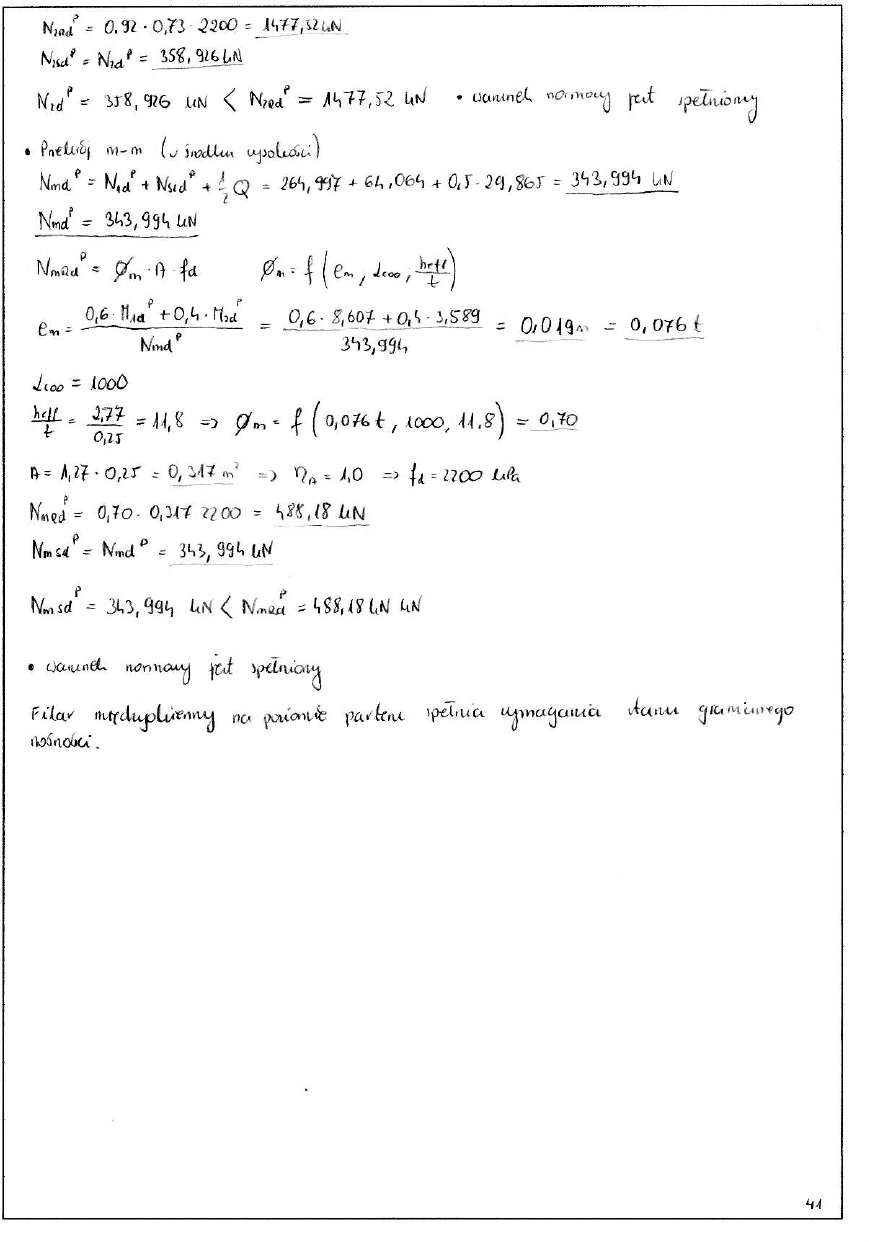 N₂Rdᵖ = 0,92 · 0,73 · 2200 = 1477,52 kN
N₂sdᵖ = N₂dᵖ = 358,926 kN
N₂dᵖ = 358,926 kN < N₂Rdᵖ = 1477,52 kN • warunek normowy jest spełniony
• Przekrój m-m (w środku wysokości)
Nmdᵖ = N₁dᵖ + Ns₁dᵖ + ½ Q = 264,997 + 64,064 + 0,5 · 29,865 = 343,994 kN
Nmdᵖ = 343,994 kN
NmRdᵖ = Øm · A · fd Øm = f (em, α∞, heff/t)
em = (0,6 · M₁dᵖ + 0,4 · M₂dᵖ)/Nmdᵖ = (0,6 · 8,607 + 0,4 · 3,589)/343,994 = 0,019m = 0,076 t
α∞ = 1000
heff/t = 2,77/0,25 = 11,8 => Øm = f (0,076 t, 1000, 11.8) = 0,70
A = 1,27 · 0,25 = 0,317 m² => ηA = 1,0 => fd = 2200 kPa
NmRdᵖ = 0,70 · 0,317 2200 = 488,18 kN
Nmsdᵖ = Nmdᵖ = 343,994 kN
Nmsdᵖ = 343,994 kN < NmRdᵖ = 488,18 kN kN
• warunek normowy jest spełniony
Filar międzyokienny na poziomie parteru spełnia wymagania stanu granicznego
nośności.
41